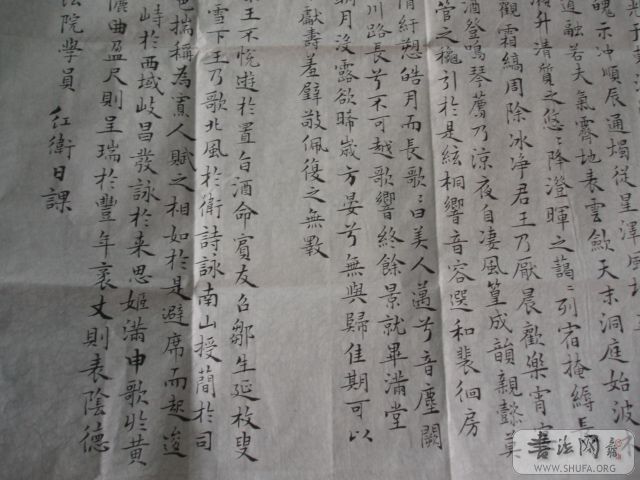 魄示沖順辰通燭從星澤風
道融若夫氣霽地表雲斂天末洞庭始波
升清質之悠〻降澄暉之藹〻列宿掩縟長
觀霜縞周除冰淨君王乃厭晨歡樂宵
酒登鳴琴薦乃涼夜自凄風篁成韻親懿莫
管之穐引於是絃桐響音容選和裴徊房
情紆愬皓月而長歌〻曰美人邁兮音塵闕
川路長兮不可越歌響終餘景就畢滿堂
月沒露欲晞歲方晏兮無與歸佳期可以
獻壽羞璧敬佩復之無斁
王不悅遊於置旨酒命賓友召鄒生延枚叟
雪下王乃歌北風於衛詩詠南山授蕳於司
揣稱為寡人賦之相如於是避席而起逡
峙於西域岐昌發詠於來思姬滿申歌於黃
儷曲盈尺則呈瑞於豐年袤丈則表陰德
法院學員 紅衛日課
書法网
WWW.SHUFA.ORG